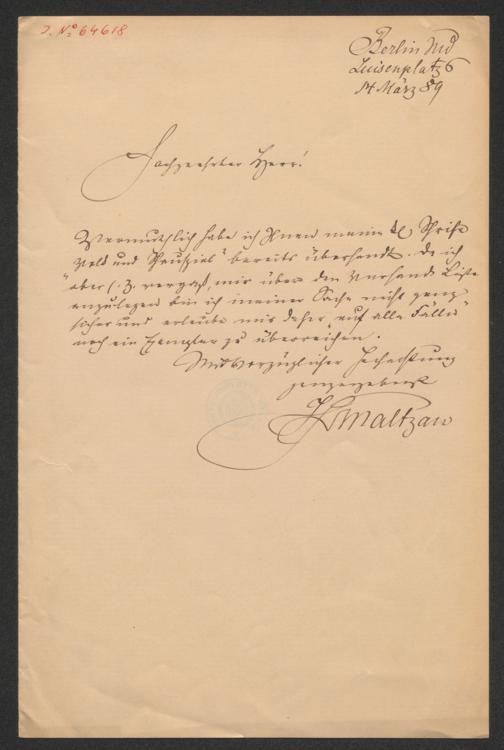 J. No 64618
Berlin NW
Luisenplatz 6
14 März 89
Hochgeehrter Herr!
Vermuthlich habe ich Ihnen meine Schrift
und bereits übersandt. Da ich
aber s. Z. vergaß, mir über den Versand Liste
anzulegen bin ich meiner Sache nicht ganz
sicher und erlaube mir daher "auf alle Fälle"
noch ein Exemplar zu überreichen.
Mit vorzüglicher Hochachtung
ganz ergebenst
Maltzan